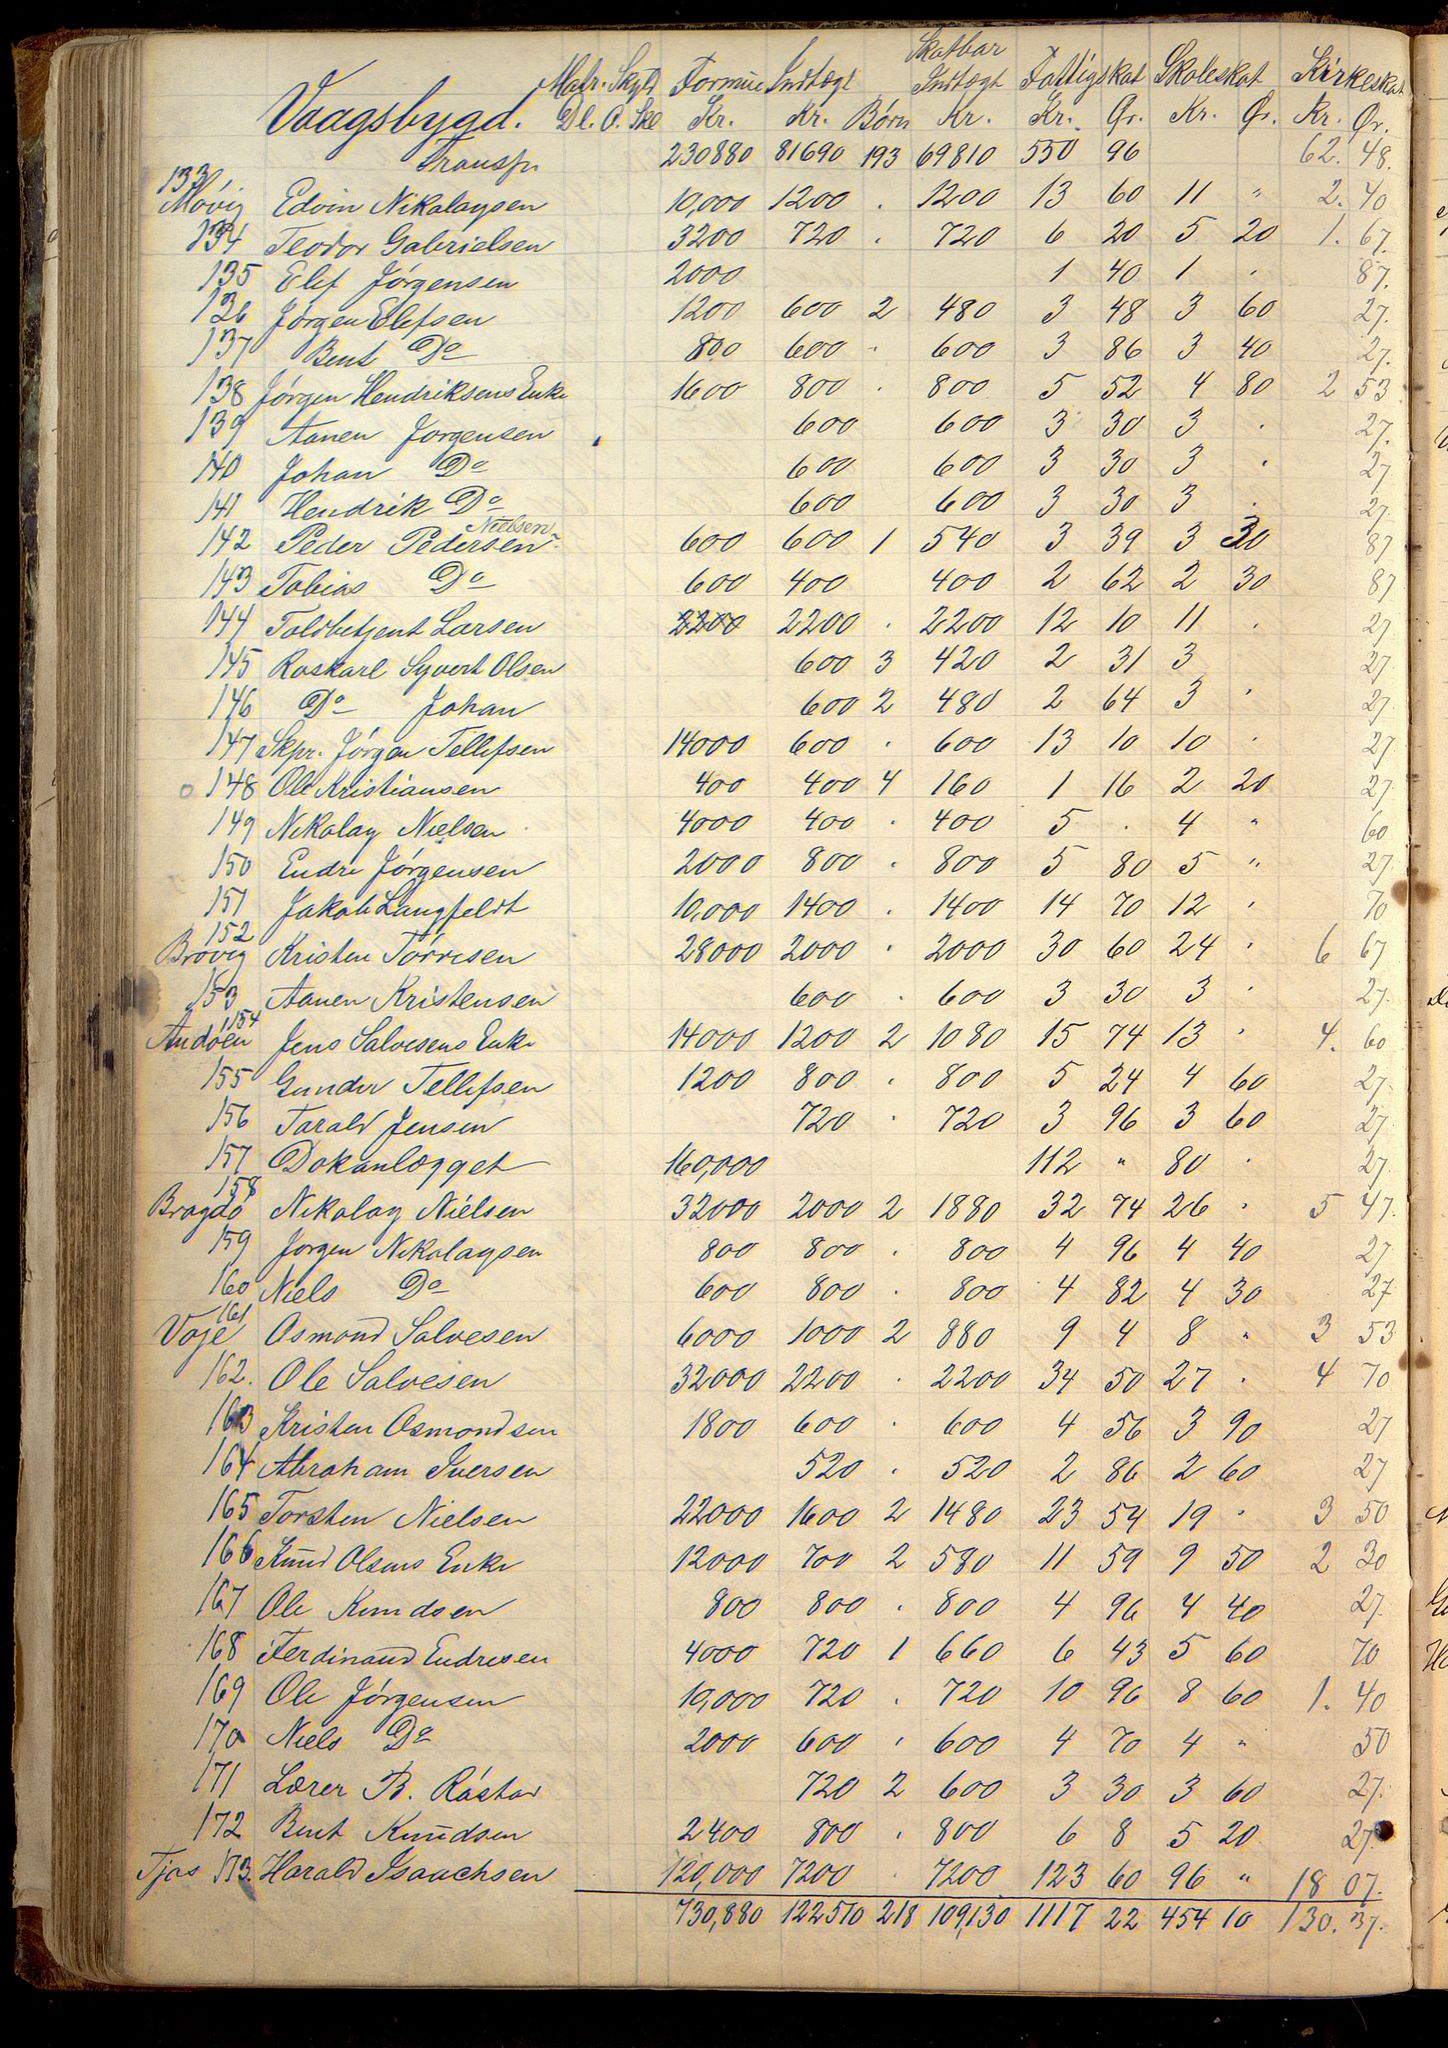 Skatbar
Matr. Skyld Formue Indtægt Indtægt Fattigskat Skoleskat Kirkeskat
Vaagsbygd. Dl. O. Sk Kr. Kr. Børn Kr. Kr. Ør. Kr. Ør. Kr. Ør.
Transp. 230880 81690 193 69810 550 96 62. 48.
133
Móvig Edvin Nikolaysen 10,000 1200 . 1200 13 60 11 " 2. 40
134 Teodor Gabrielsen 3200 720 . 720 6 20 5 20 1. 67.
135 Elef Jørgensen 2000 1 40 1 . 87.
136 Jørgen Elefsen 1200 600 2 480 3 48 3 60 27.
137 Bent Do 800 600 . 600 3 86 3 40 27.
138 Jørgen Hendriksens Enke 1600 800 . 800 5 52 4 80 2 53
139 Aanen Jørgensen 600 600 3 30 3 . 27.
140 Johan Do 600 600 3 30 3 . 27
141 Hendrik Do 600 600 3 30 3 . 27.
Nielsen
142 Peder Pedersen 600 600 1 540 3 39 3 30 87
143 Tobias Do 600 400 400 2 62 2 30 87
144 Toldbetjent Larsen 2200 2200 . 2200 12 10 11 . 27
145 Roskarl Syvert Olsen 600 3 420 2 31 3 27.
146 Do Johan 600 2 480 2 64 3 . 27.
147 Skpr. Jørgen Tellefsen 14000 600 . 600 13 10 10 . 27.
148 Ole Kristiansen 400 400 4 160 1 16 2 20 27.
149 Nikolay Nielsen 4000 400 . 400 5 . 4 " 60
150 Endre Jørgensen 2000 800 . 800 5 80 5 " 27.
151 Jakob Langfeldt 10,000 1400 . 1400 14 70 12 . 70
152
Brøvig Kristen Torresen 28000 2000 . 2000 30 60 24 . 6 67
153 Aanen Kristensen 600 . 600 3 30 3 . 27.
154
Andøen Jens Salvesens Enke 14000 1200 2 1080 15 74 13 . 4. 60
155 Gunder Tellefsen 1200 800 . 800 5 24 4 60 27.
156 Tarald Jensen 720 . 720 3 96 3 60 27.
157 Dokanlægget 160,000 112 " 80 . 27.
158
Bragdø Nikolay Nielsen 32000 2000 2 1880 32 74 26 . 5 47.
159 Jørgen Nikolaysen 800 800 . 800 4 96 4 40 27
160 Niels Do 600 800 . 800 4 82 4 30 27
161
Voje Osmond Salvesen 6000 1000 2 880 9 4 8 " 3 53
162. Ole Salvesen 32000 2200 . 2200 34 50 27 . 4 70
163 Kristen Osmondsen 1800 600 . 600 4 56 3 90 27
164 Abraham Iversen 520 . 520 2 86 2 60 27
165 Torsten Nielsen 22000 1600 2 1480 23 54 19 . 3 50
166 Knud Olsens Enke 12000 700 2 580 11 59 9 50 2 30
167 Ole Knudsen 800 800 . 800 4 96 4 40 27.
168 Ferdinand Endresen 4000 720 1 660 6 43 5 60 70
169 Ole Jørgensen 10,000 720 . 720 10 96 8 60 1. 40
170 Niels Do 2000 600 . 600 4 70 4 " 50
171 Lærer B. Róstad 720 2 600 3 30 3 60 27.
172 Bent Knudsen 2400 800 . 800 6 8 5 20 27
Tjos 173. Harald Isaachsen 120,000 7200 . 7200 123 60 96 " 18 07.
730,880 122510 218 109,130 1117 22 454 10 130. 37.